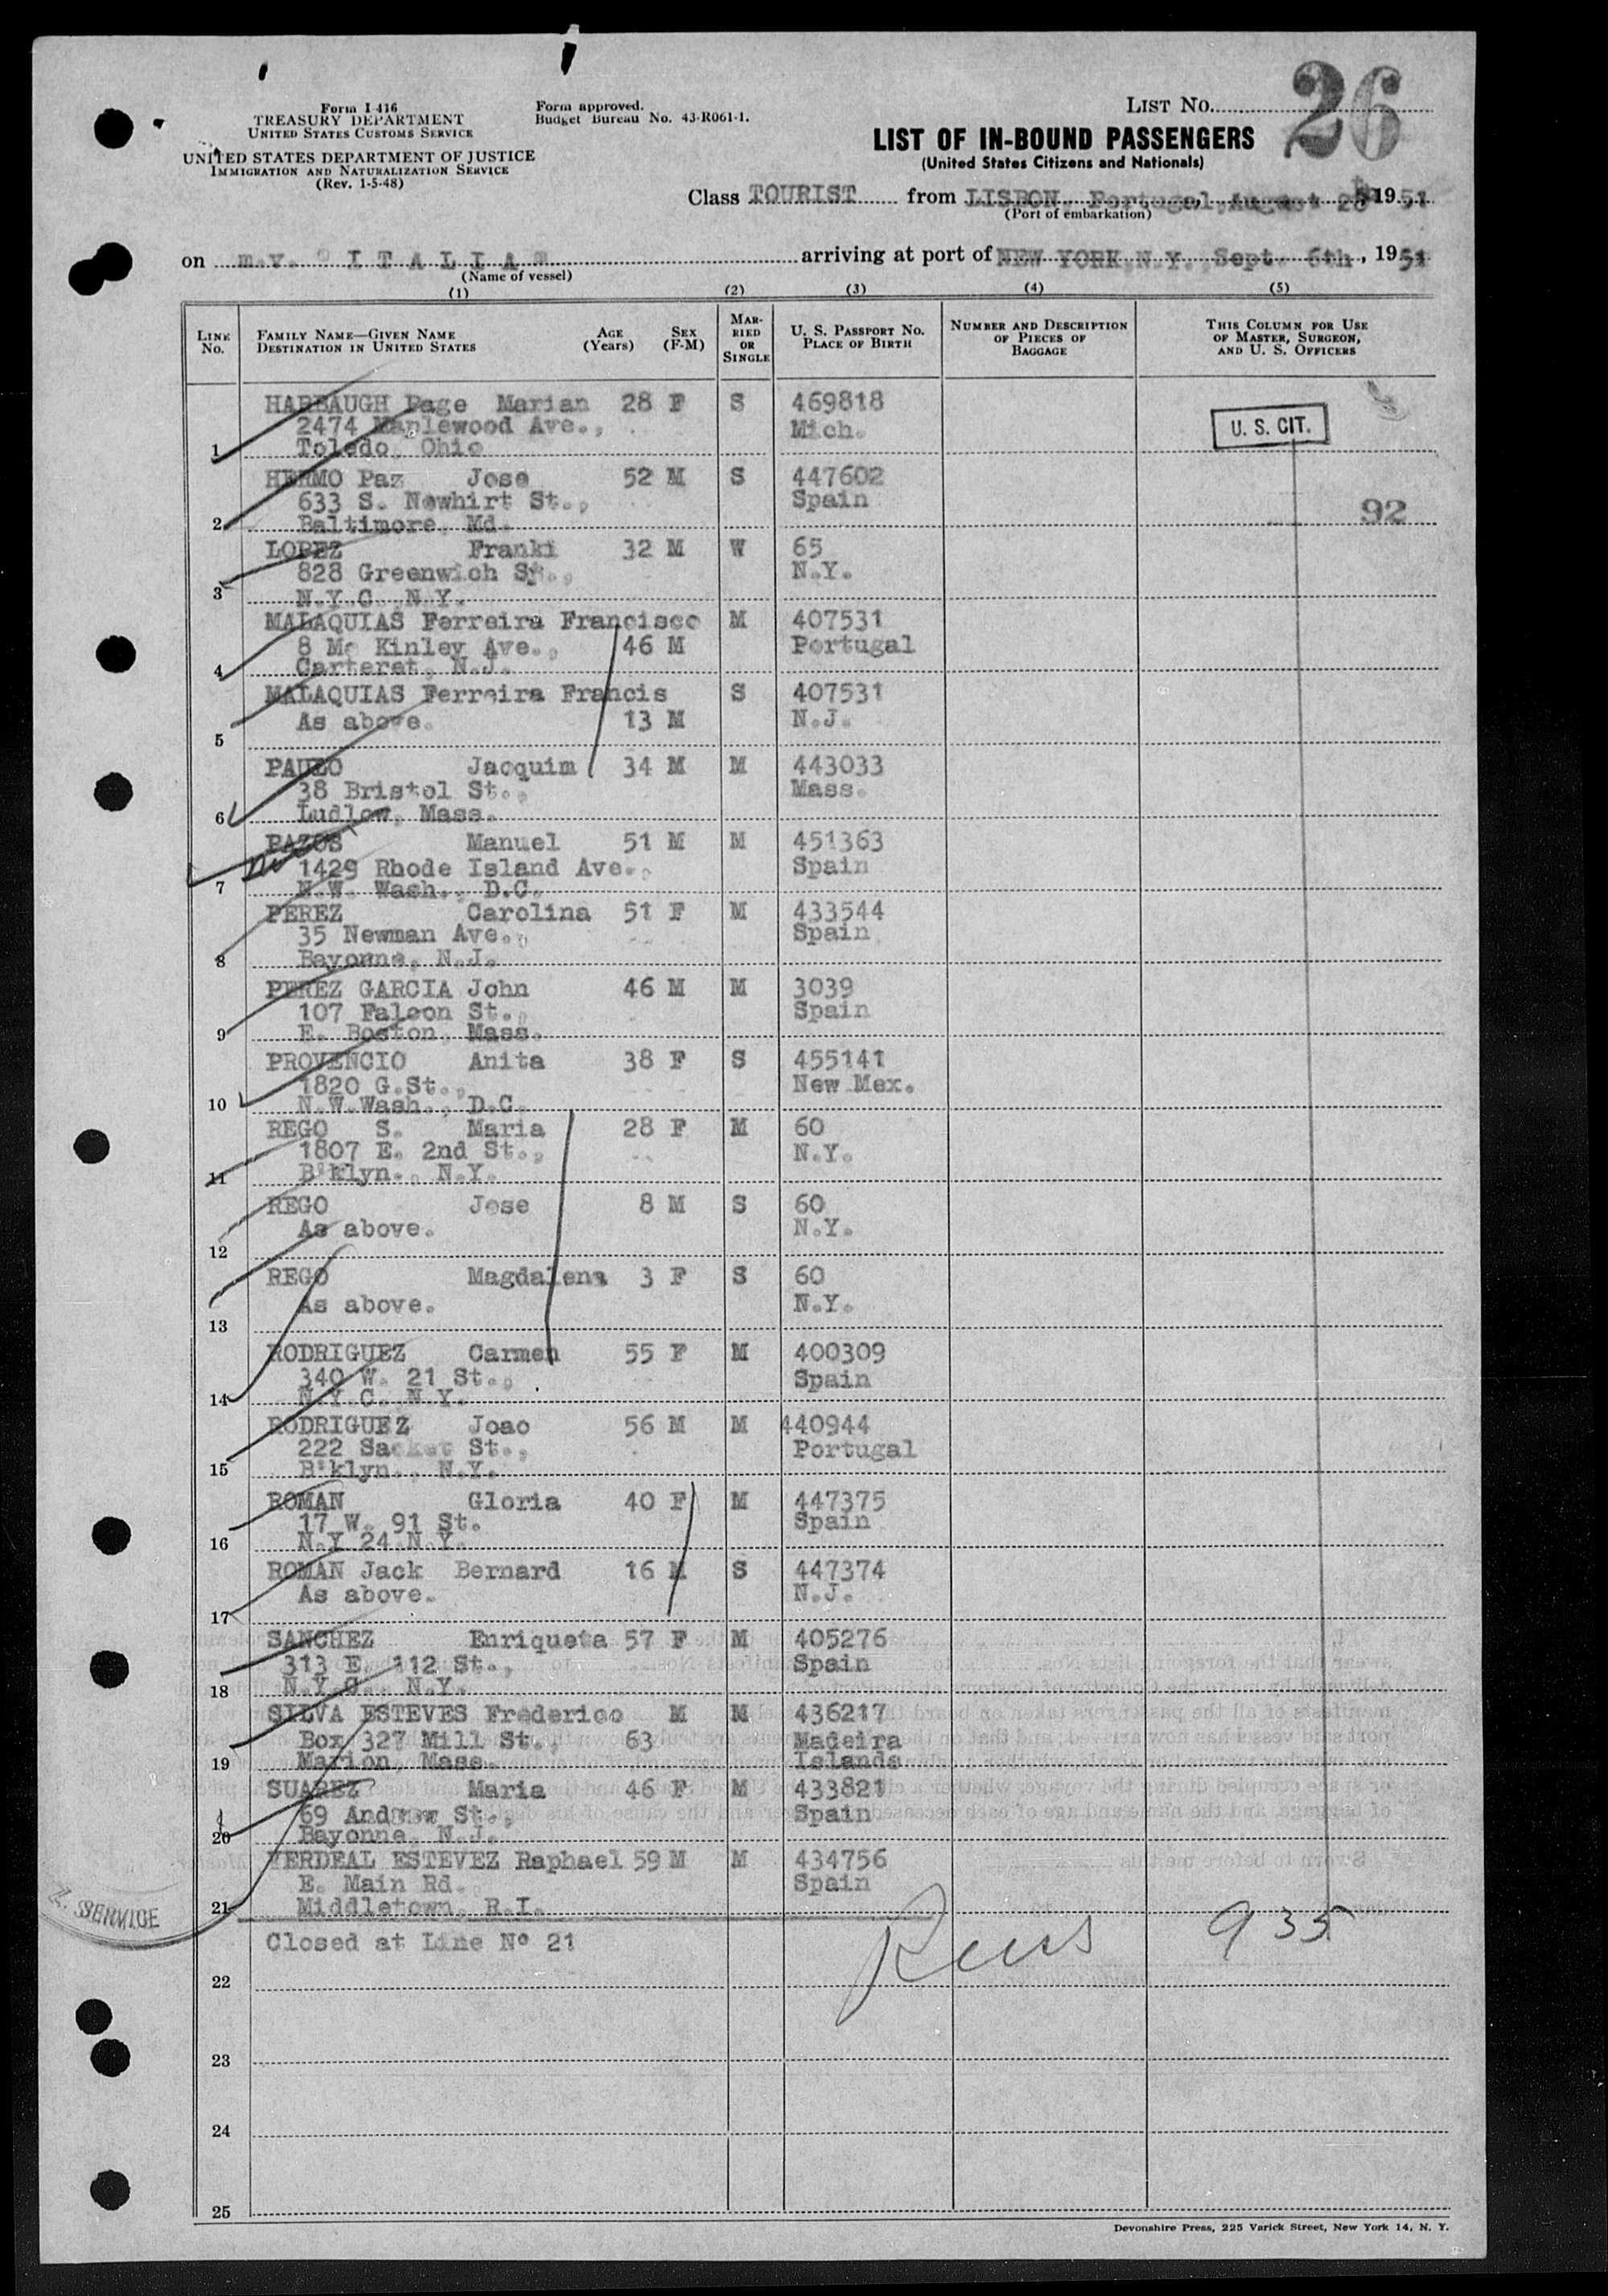 Form I-416
TREASURY DEPARTMENT
UNITED STATES CUSTOMS SERVICE
UNITED STATES DEPARTMENT OF JUSTICE
IMMIGRATION AND NATURALIZATION SERVICE
(Rev. 1-5-48)
Form approved.
Budget Bureau No. 43-R061-1.
LIST No. 26
LIST OF IN-BOUND PASSENGERS
(United States Citizens and Nationals)
Class TOURIST from LISBON, Portugal, August 28th, 1951
(Port of embarkation)
on m.v. "ITALIA" arriving at port of NEW YORK, N.Y., Sept. 6th, 1951
(Name of vessel)
(1) (2) (3) (4) (5)
LINE No. FAMILY NAME—GIVEN NAME DESTINATION IN UNITED STATES AGE (Years) SEX (F-M) MARRIED OR SINGLE U. S. PASSPORT No. PLACE OF BIRTH NUMBER AND DESCRIPTION OF PIECES OF BAGGAGE THIS COLUMN FOR USE OF MASTER, SURGEON, AND U. S. OFFICERS
HARBAUGH Page Marian 28 F S 469818
2474 Maplewood Ave., Mich. U. S. CIT.
1 Toledo, Ohio
HERMO Paz Jose 52 M S 447602
633 S. Newhirt St., Spain
2 Baltimore, Md. 92
LOPEZ Franki 32 M W 65
828 Greenwich St., N.Y.
3 N.Y.C. N.Y.
MALAQUIAS Ferreira Francisco M 407531
8 Mc Kinley Ave., 46 M Portugal
4 Carteret, N.J.
MALAQUIAS Ferreira Francis S 407531
As above. 13 M N.J.
5
PAULO Jacquim 34 M M 443033
38 Bristol St., Mass.
6 Ludlow, Mass.
PAZOS Manuel 51 M M 451363
1429 Rhode Island Ave., Spain
7 N.W. Wash., D.C.
PEREZ Carolina 51 F M 433544
35 Newman Ave., Spain
8 Bayonne, N.J.
PEREZ GARCIA John 46 M M 3039
107 Falcon St., Spain
9 E. Boston, Mass.
PROVENCIO Anita 38 F S 455141
1820 G.St., New Mex.
10 N.W.Wash., D.C.
REGO S. Maria 28 F M 60
1807 E. 2nd St., N.Y.
11 B'klyn., N.Y.
REGO Jose 8 M S 60
As above. N.Y.
12
REGO Magdalena 3 F S 60
As above. N.Y.
13
RODRIGUEZ Carmen 55 F M 400309
340 W. 21 St., Spain
14 N.Y.C. N.Y.
RODRIGUEZ Joao 56 M M 440944
222 Sacket St., Portugal
15 B'klyn., N.Y.
ROMAN Gloria 40 F M 447375
17 W. 91 St. Spain
16 N.Y 24 N.Y.
ROMAN Jack Bernard 16 M S 447374
As above. N.J.
17
SANCHEZ Enriqueta 57 F M 405276
313 E. 112 St., Spain
18 N.Y.C. N.Y.
SILVA ESTEVES Frederico M M 436217
Box 327 Mill St., 63 Madeira
19 Marion, Mass. Islands
SUAREZ Maria 46 F M 433821
69 Andrew St., Spain
20 Bayonne, N.J.
VERDEAL ESTEVEZ Raphael 59 M M 434756
E. Main Rd. Spain
21 Middletown, R.I.
SERVICE
935
Closed at Line Nº 21
22
23
24
25
Devonshire Press, 225 Varick Street, New York 14, N. Y.